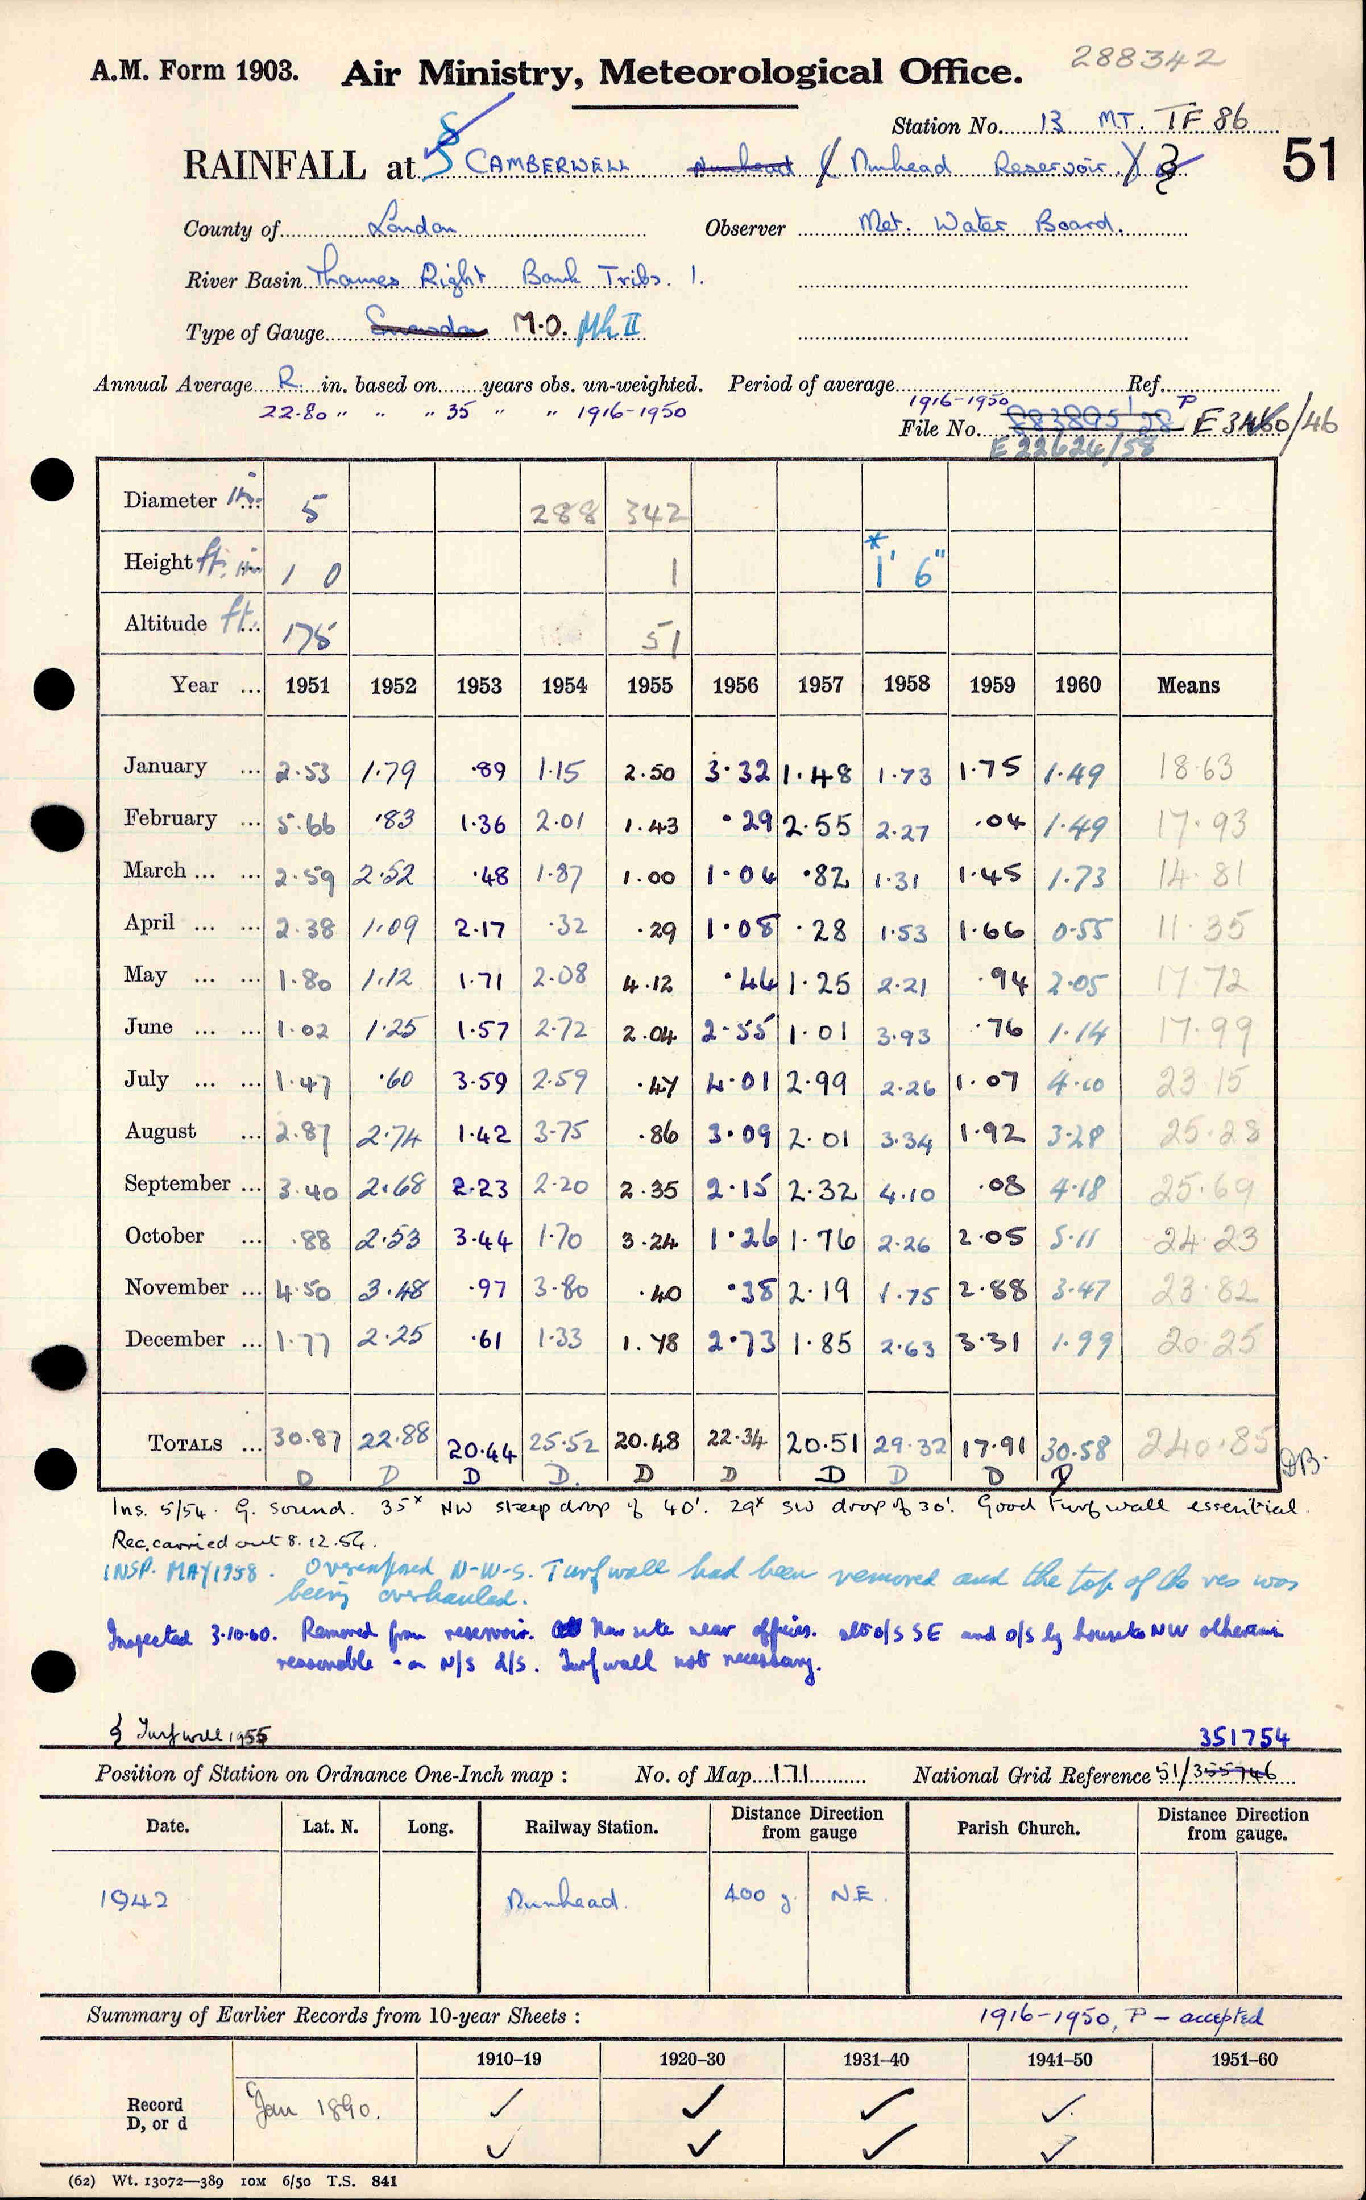 288342
A.M. Form 1903. Air Ministry, Meteorological Office.
Station No. 13 MT. TF 86
51
RAINFALL at CAMBERWELL Nunhead (Nunhead Reservoir.)
County of London Observer Met. Water Board.
River Basin Thames Right Bank Tribs. 1.
Type of Gauge Snowdon M.O. Mk II
Annual Average R. in. based on years obs. un-weighted. Period of average Ref.
22.80 " " " 35 " " 1916-1950 1916-1950 P
File No. E 3460/46
E 22624/58
Diameter in. 5 288 342
Height ft. in. 1 0 1 * 1' 6"
Altitude ft. 175 51
Year ... 1951 1952 1953 1954 1955 1956 1957 1958 1959 1960 Means
January ... 2.53 1.79 .89 1.15 2.50 3.32 1.48 1.73 1.75 1.49 18.63
February ... 5.66 .83 1.36 2.01 1.43 .29 2.55 2.27 .04 1.49 17.93
March ... ... 2.59 2.52 .48 1.87 1.00 1.04 .82 1.31 1.45 1.73 14.81
April ... ... 2.38 1.09 2.17 .32 .29 1.08 .28 1.53 1.66 0.55 11.35
May ... ... 1.80 1.12 1.71 2.08 4.12 .44 1.25 2.21 .94 2.05 17.72
June ... ... 1.02 1.25 1.57 2.72 2.04 2.55 1.01 3.93 .76 1.14 17.99
July ... ... 1.47 .60 3.59 2.59 .47 4.01 2.99 2.26 1.07 4.10 23.15
August ... 2.87 2.74 1.42 3.75 .86 3.09 2.01 3.34 1.92 3.28 25.28
September ... 3.40 2.68 2.23 2.20 2.35 2.15 2.32 4.10 .08 4.18 25.69
October ... .88 2.53 3.44 1.70 3.24 1.26 1.76 2.26 2.05 5.11 24.23
November ... 4.50 3.48 .97 3.80 .40 .38 2.19 1.75 2.88 3.47 23.82
December ... 1.77 2.25 .61 1.33 1.78 2.73 1.85 2.63 3.31 1.99 20.25
TOTALS ... 30.87 22.88 20.44 25.52 20.48 22.34 20.51 29.32 17.91 30.58 240.85
D D D D. D D D D D D DB.
Ins. 5/54. G. sound. 35x NW steep drop of 40'. 29x SW drop of 30'. Good turf wall essential.
Rec. carried out 8.12.54.
INSP. MAY 1958. Overexposed N-W-S. Turf wall had been removed and the top of the res was
being overhauled.
Inspected 3.10.60. Removed from reservoir. New site near offices. o/s SE and o/s by house to NW otherwise
reasonable - on N/S d/s. Turf wall not necessary.
Turf wall 1955
351754
Position of Station on Ordnance One-Inch map : No. of Map 171 National Grid Reference 51/355746
Date. Lat. N. Long. Railway Station. Distance Direction from gauge Parish Church. Distance Direction from gauge.
1942 Nunhead. 400 y. N.E.
Summary of Earlier Records from 10-year Sheets : 1916-1950, P - accepted
1910–19 1920–30 1931–40 1941–50 1951–60
Record
D, or d Jan 1890. ✓ ✓ ✓ ✓
✓ ✓ ✓ ✓
(62) Wt. 13072—389 10M 6/50 T.S. 841